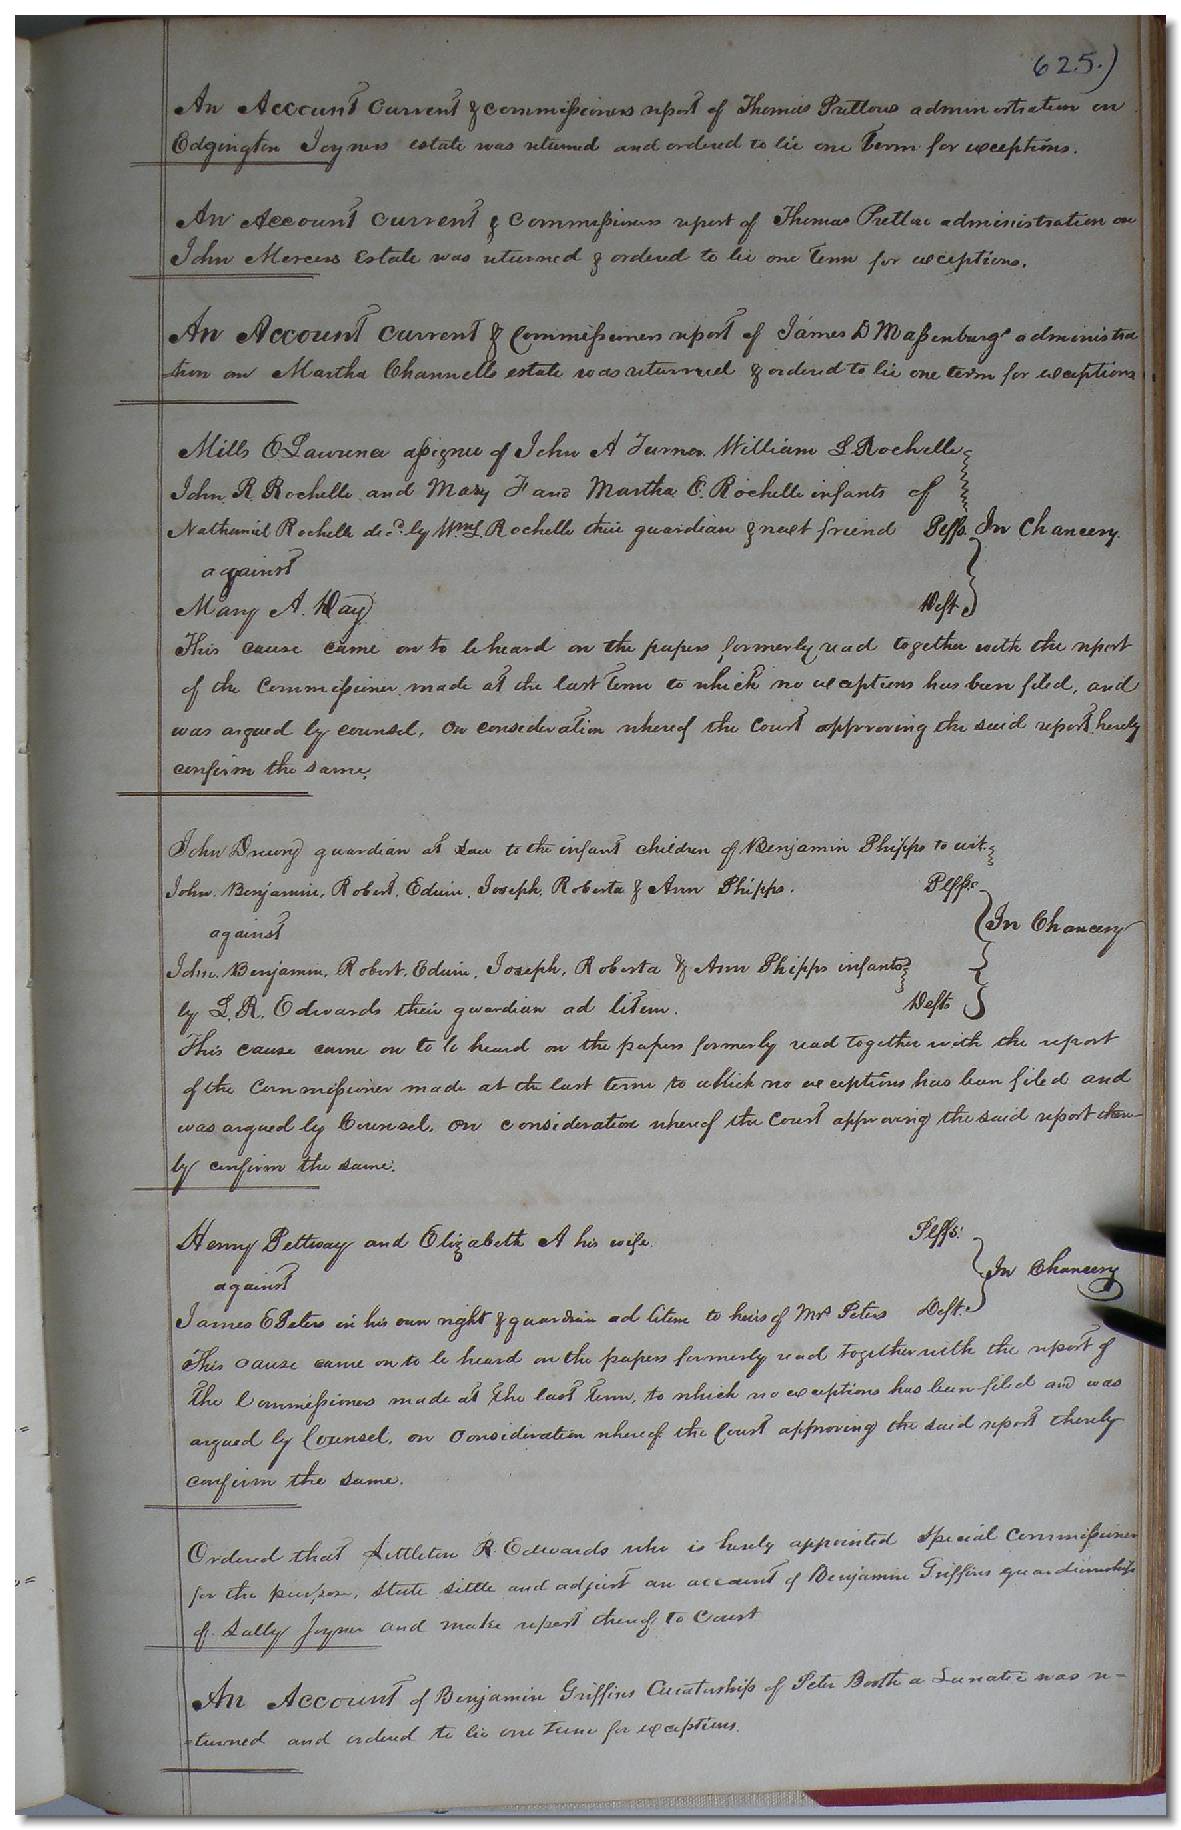 625.)
An Account Current & commissioners report of Thomas Pretlows administration on
Edgington Joyners estate was returned and ordered to lie one Term for exceptions.
An Account Current & Commissioners report of Thomas Pretlow administration on
John Mercers Estate was returned & ordered to lie one Term for exceptions.
An Account Current & Commissioners report of James D Massenburgs administra
tion on Martha Channells estate was returned & ordered to lie one term for exceptions
Mills E Lawrence assignee of John A Turner William L Rochelle
John R Rochelle and Mary F and Martha E. Rochelle infants of
Nathaniel Rochelle decd. by Wm L Rochelle their guardian & next friend Plffs. In Chancery.
against
Mary A. Day Deft.
This cause came on to be heard on the papers formerly read together with the report
of the Commissioner made at the last Term to which no exceptions has been filed, and
was argued by counsel, on consideration whereof the Court approving the said report hereby
confirm the same.
John Drewry guardian at Law to the infant children of Benjamin Phipps to wit.
John, Benjamin, Robert, Edwin, Joseph, Roberta & Ann Phipps. Plffs.
against In Chancery
John, Benjamin, Robert, Edwin, Joseph, Roberta & Ann Phipps infants
by L. R. Edwards their guardian ad litem. Defts
This cause came on to be heard on the papers formerly read together with the report
of the Commissioner made at the last term to which no exceptions has been filed and
was argued by Counsel, on consideration whereof the Court approving the said report
by confirm the same.
Henry Pettway and Elizabeth A his wife. Plffs.
against In Chancery
James E Peters in his own right & guardian ad litem to heirs of Mrs Peters Deft.
This cause came on to be heard on the papers formerly read together with the report of
the Commissioners made at the last Term, to which no exceptions has been filed and was
argued by Counsel, on consideration whereof the Court approving the said report thereby
confirm the same.
Ordered that Littleton R Edwards who is hereby appointed Special Commissioner
for the purpose, state settle and adjust an account of Benjamin Griffins guardianship
of Sally Joyner and make report thereof to Court
An Account of Benjamin Griffins Curatorship of Peter Booth a Lunatic was re-
-turned and ordered to lie one Term for exceptions.